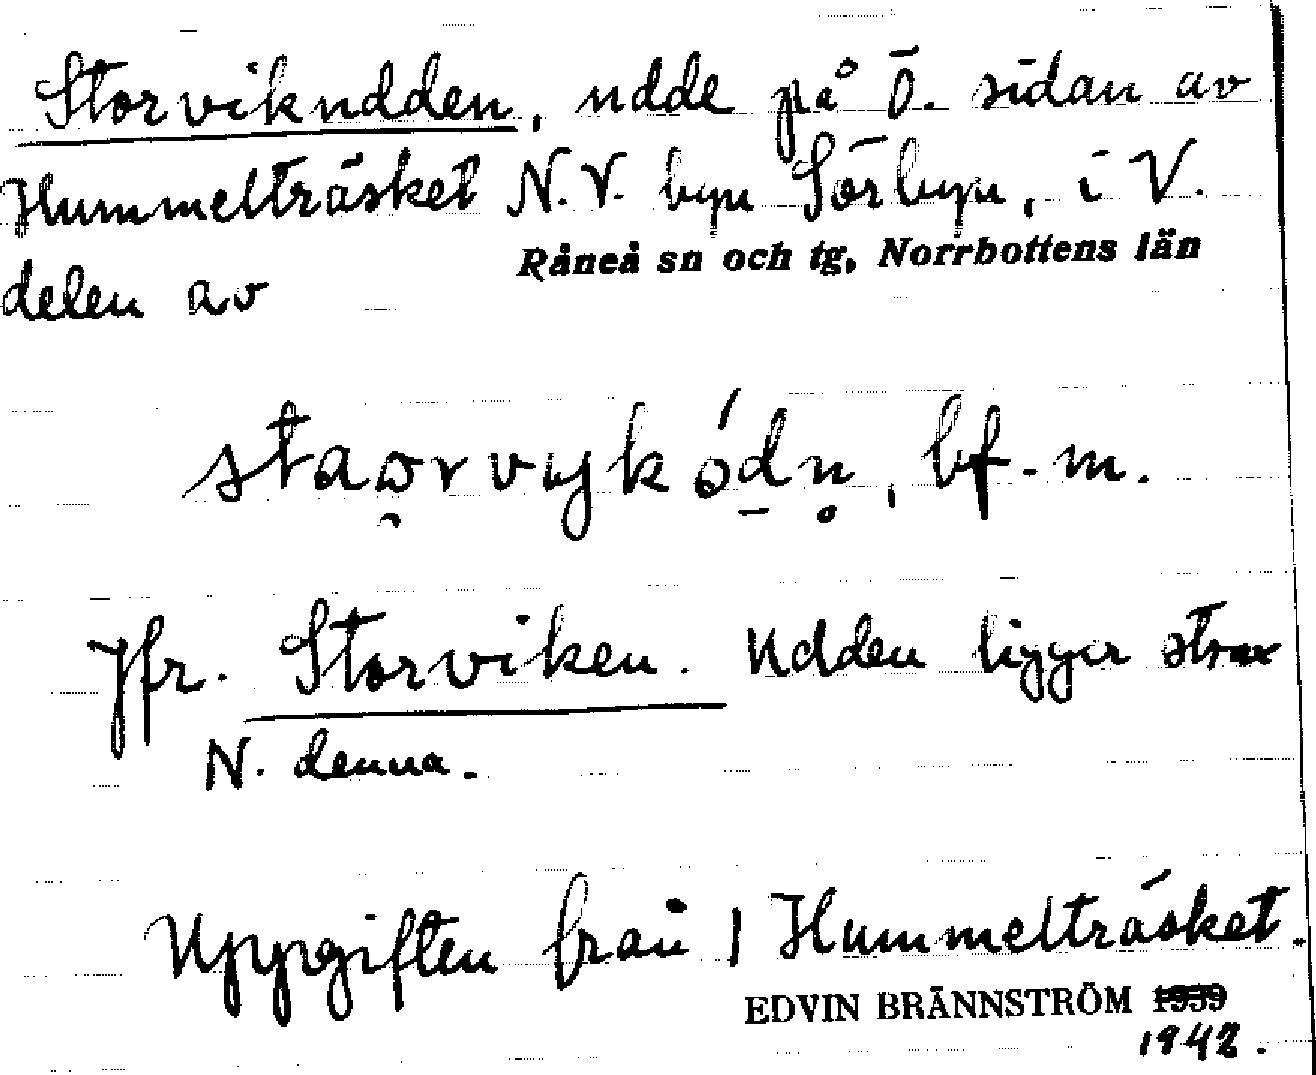 Storvikudden, udde på Ö. sidan av
Hummelträsket N.V. byn Sörbyn, i V.
Råneå sn och tg, Norrbottens län
delen av
bf. m.
Jfr. Storviken. Udden ligger strax
N. denna.
Uppgiften från Hummelträsket.
EDVIN BRÄNNSTRÖM 1939
1942.